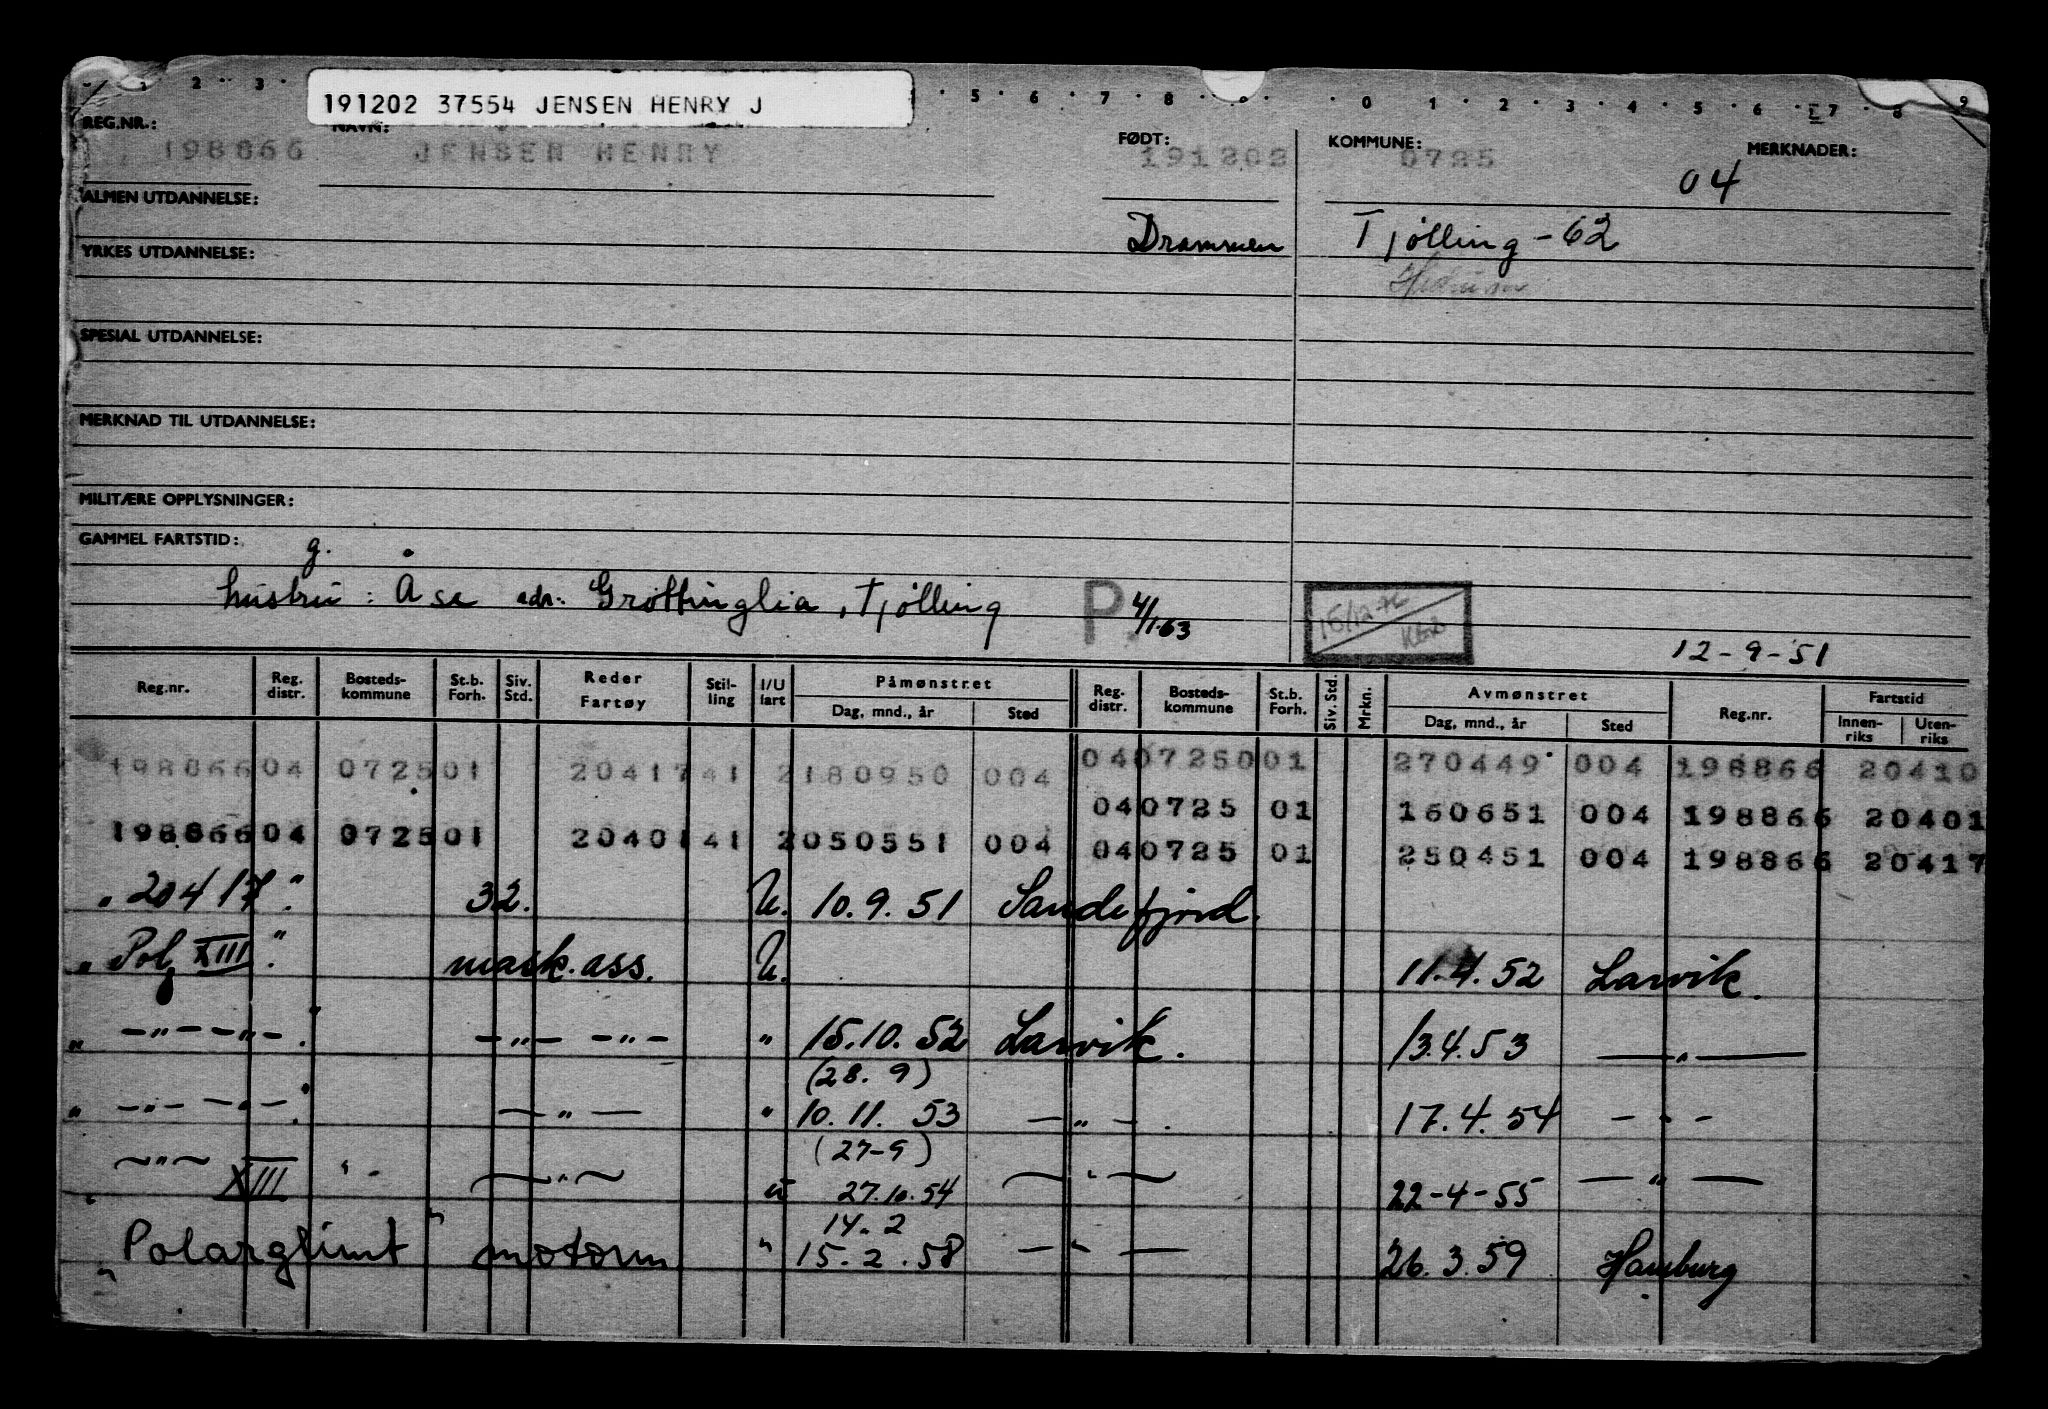 191202 37554 JENSEN HENRY J
REG.NR.: NAVN: FØDT: KOMMUNE: MERKNADER:
198866 JENSEN HENRY 191202 0725 04
ALMEN UTDANNELSE:
Drammen Tjølling - 62
YRKES UTDANNELSE:
SPESIAL UTDANNELSE:
MERKNAD TIL UTDANNELSE:
MILITÆRE OPPLYSNINGER:
GAMMEL FARTSTID:
g.
hustru: Åse adr. Grøttinglia, Tjølling P. 4/1.63
12-9-51
Reg.nr. Reg. distr. Bosteds-kommune St.b. Forh. Siv. Std. Reder Fartøy Stil-ling I/U fart Påmønstret Dag, mnd., år Sted Reg. distr. Bosteds-kommune St.b. Forh. Siv. Std. Mrkn. Avmønstret Dag, mnd., år Sted Reg.nr. Fartstid Innen-riks Uten-riks
198866 04 0725 01 20417 41 2 180950 004 04 0725 001 270449 004 198866 20410
04 0725 01 160651 004 198866 20401
198866 04 0725 01 20401 41 2 050551 004 04 0725 01 250451 004 198866 20417
" 20417 " 32. U. 10.9.51 Sandefjord.
" Pol XIII " mask.ass. U. 11.4.52 Larvik.
" -"- -"- " -"- -"- " 15.10.52 Larvik. 13.4.53 -"-
(28.9)
" -"- -"- " -"- " 10.11.53 -"- 17.4.54 -"-
(27-9)
" -"- XIII " -"- u 27.10.54 -"- 22-4-55 -"-
14.2
" Polarglimt " motorm " 15.2.58 -"- 26.3.59 Hamburg